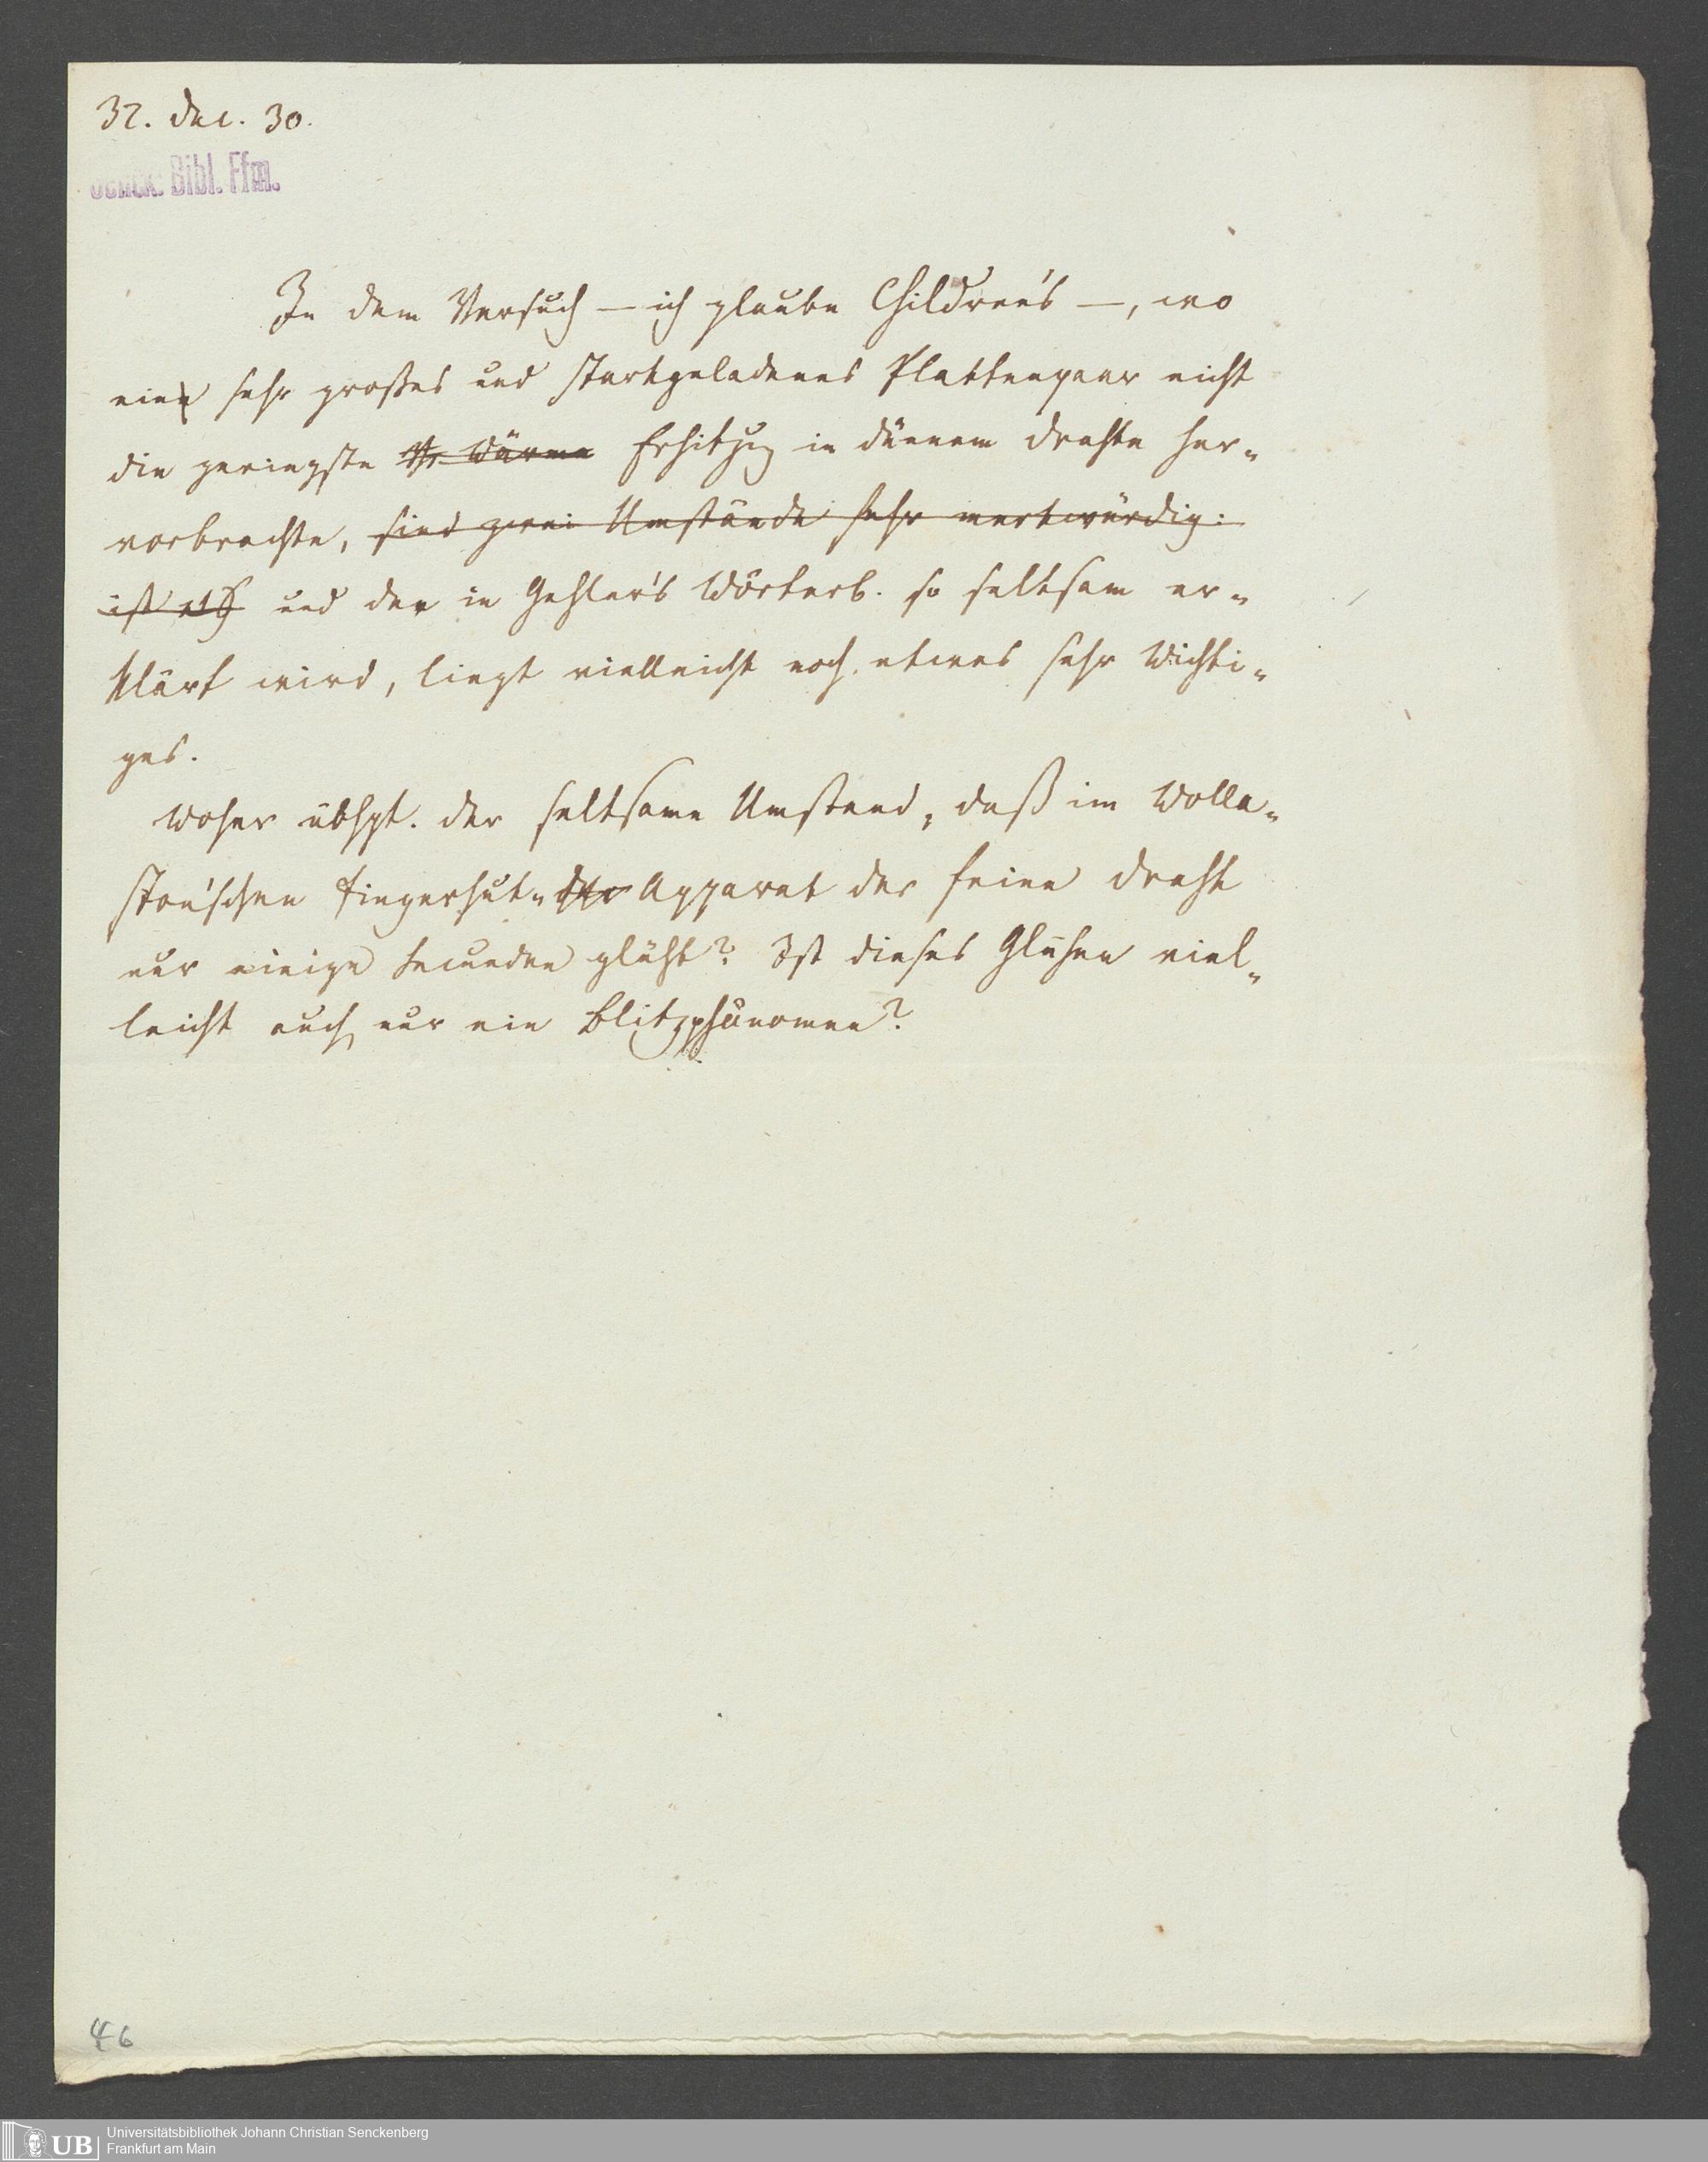 32. Dec. 30.
Senck. Bibl. Ffm.
In dem Versuch — ich glaube Children's —, wo
ein sehr großes und starkgeladenes Plattenpaar nicht
die geringste Wärme Erhitzg in dünnem Drahte her-
vorbrachte, sind zwei Umstände sehr merkwürdig:
ist und der in Gehler's Wörterb. so seltsam er-
klärt wird, liegt vielleicht noch etwas sehr Wichti-
ges.
Woher übhpt. der seltsame Umstand, daß im Wolla-
ston'schen Fingerhut- Apparat der feine Draht
nur einige Secunden glüht? Ist dieses Glühen viel-
leicht auch nur ein Blitzphänomen?
46
UB
Universitätsbibliothek Johann Christian Senckenberg
Frankfurt am Main